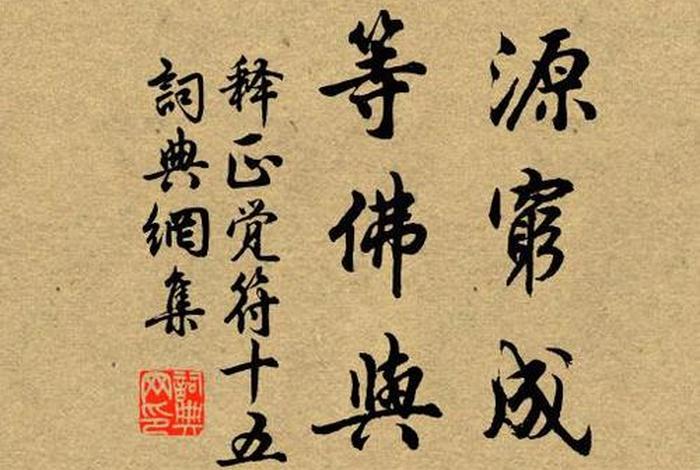 源窮成
等佛與
释正觉符十五
詞典網集
詞典
网印